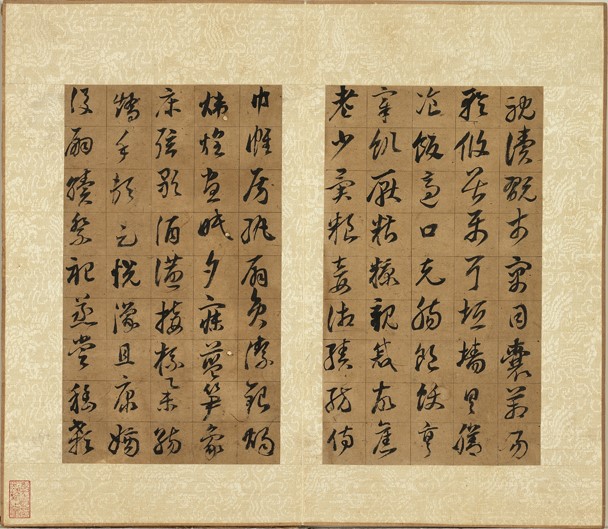 耽讀翫市寓目囊箱易
輶攸畏屬耳垣牆具膳
飡飯適口充腸飽飫烹
宰飢厭糟糠親戚故舊
老少異糧妾御績紡侍
巾帷房紈扇圓潔銀燭
煒煌晝眠夕寐藍筍象
床弦歌酒讌接杯舉觴
矯手頓足悅豫且康嫡
後嗣續祭祀蒸嘗稽顙